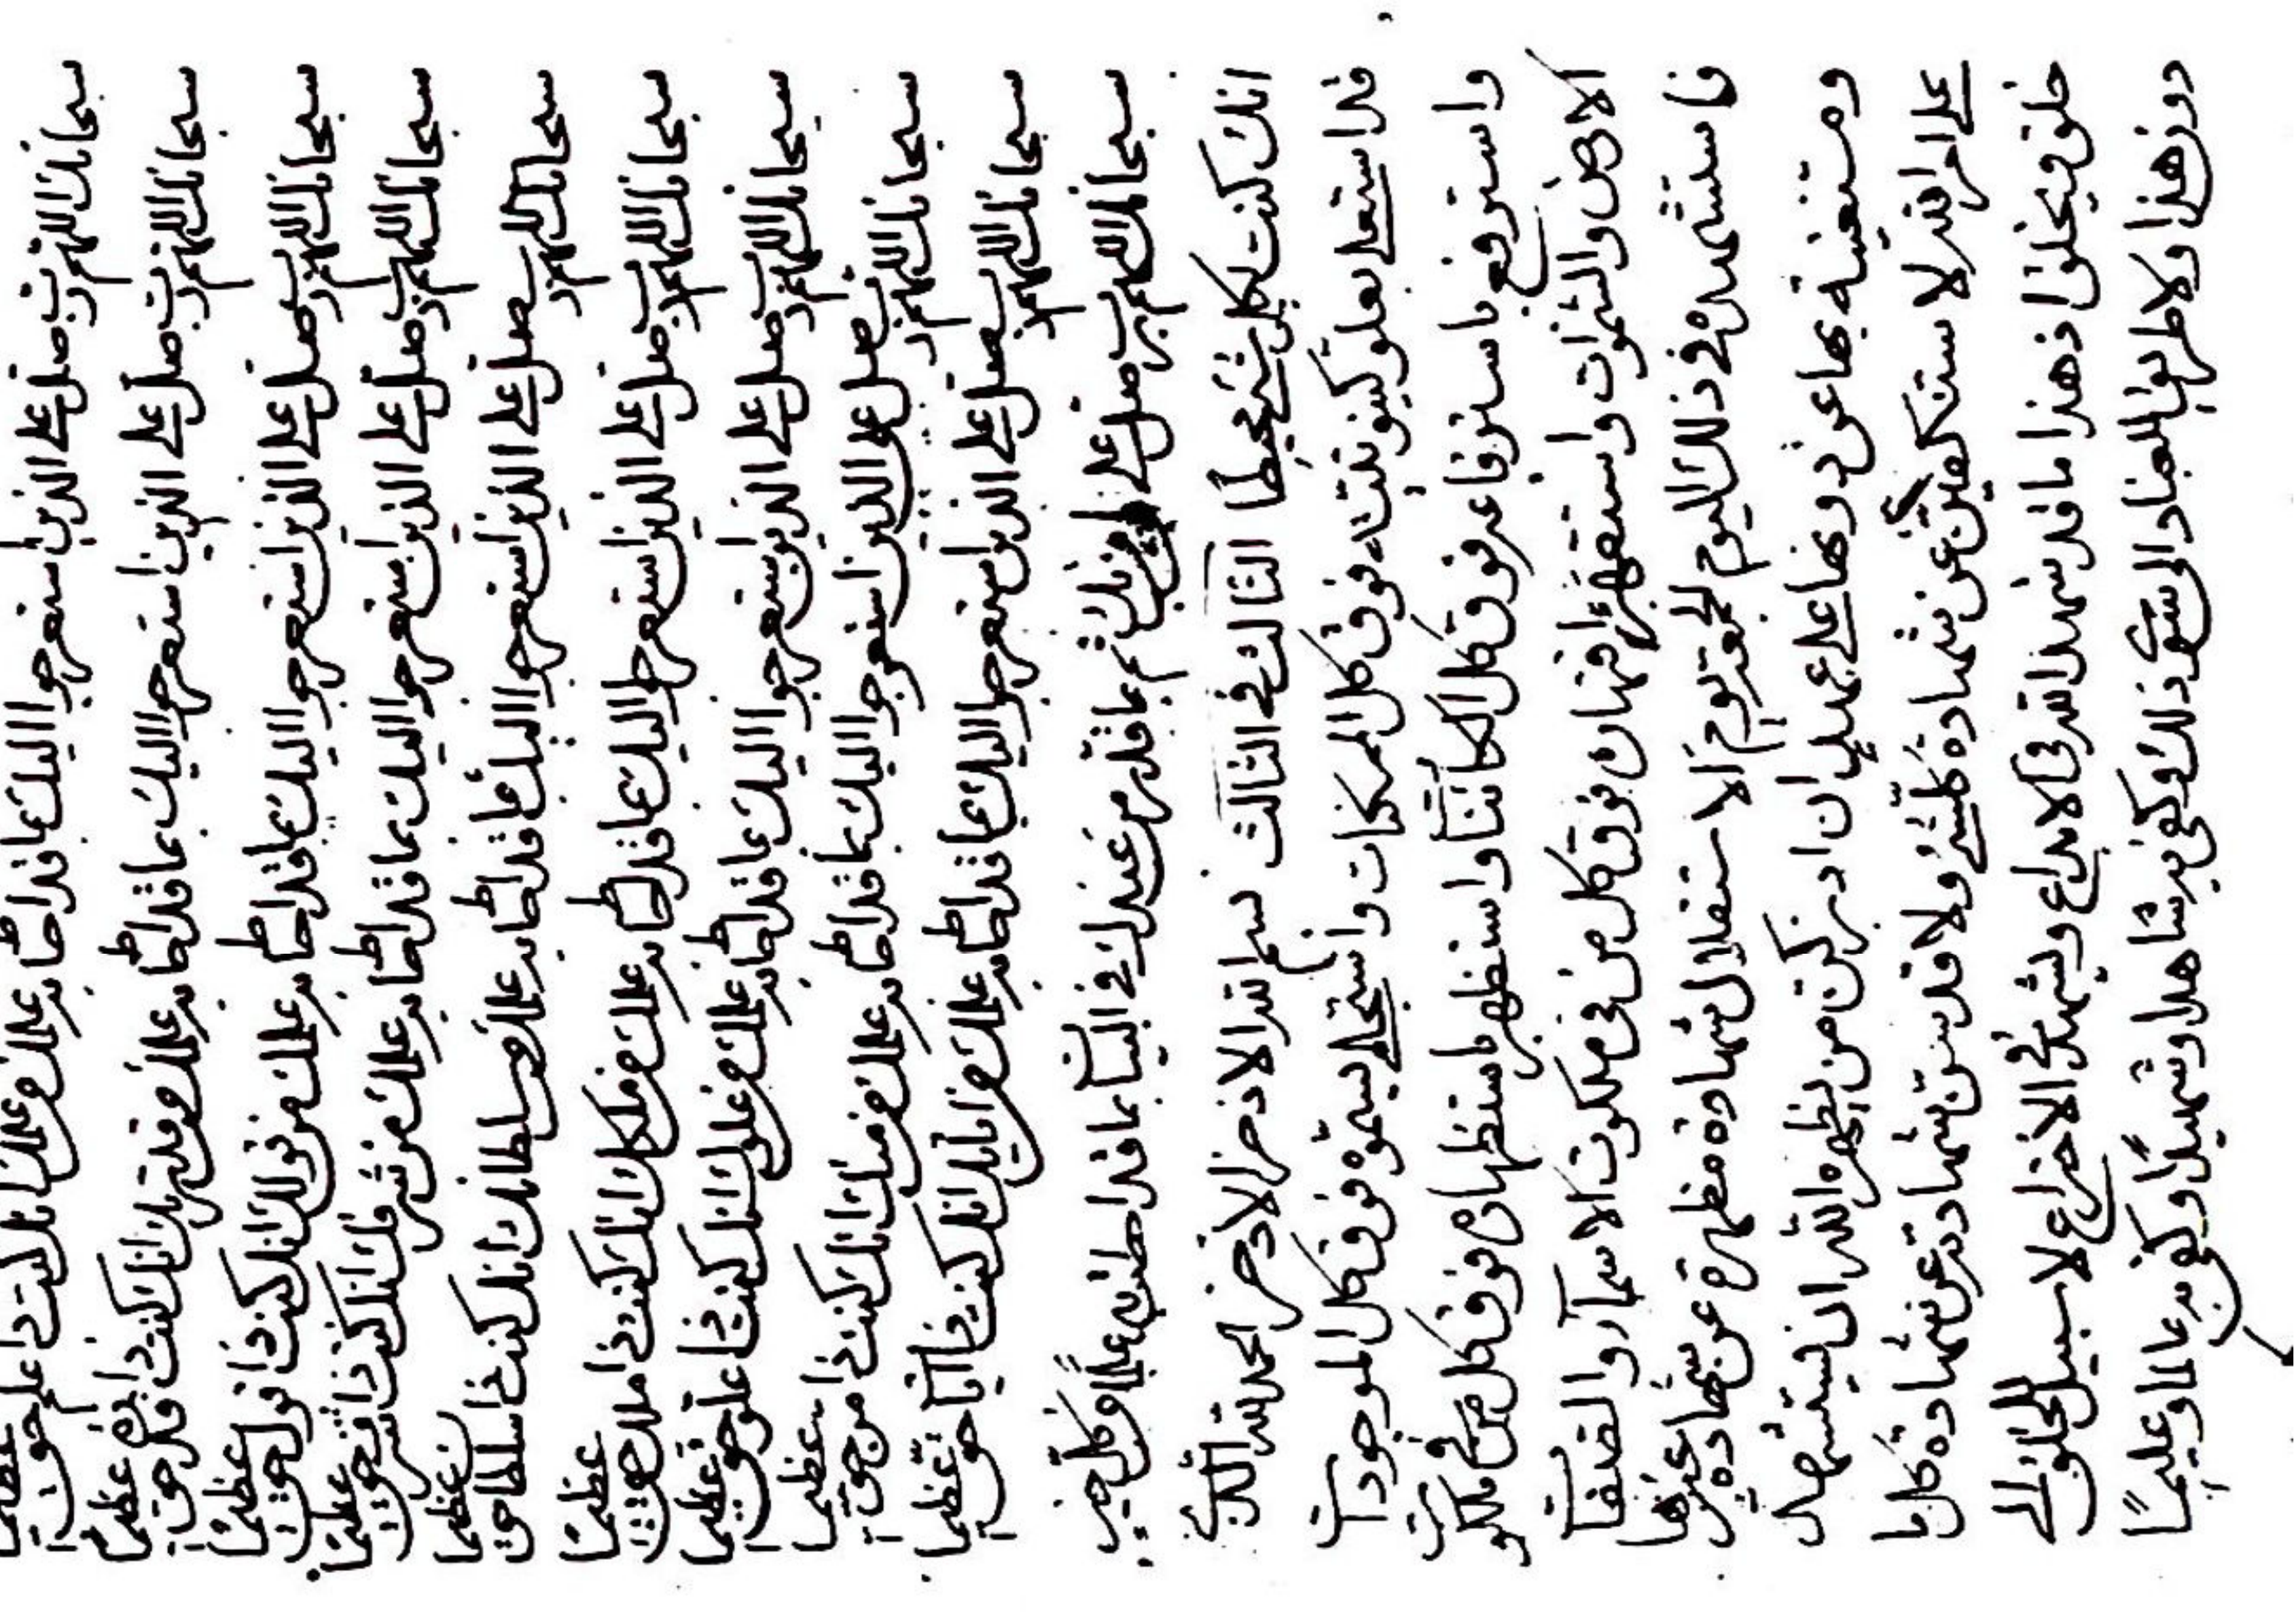 سبحانك اللهم رب صل على الذين استعرجوا اليك بما قد احاط به علمك من علمك انك كنت ذا علم حق عظيما
سبحانك اللهم رب صل على الذين استعرجوا اليك بما قد احاط به علمك من قدرتك انك كنت ذا قدر حق عظيما
سبحانك اللهم رب صل على الذين استعرجوا اليك بما قد احاط به علمك من قولك انك كنت ذا قول حق عظيما
سبحانك اللهم رب صل على الذين استعرجوا اليك بما قد احاط به علمك من شرفك انك كنت ذا شرف حق عظيما
سبحانك اللهم رب صل على الذين استعرجوا اليك بما قد احاط به علمك من سلطانك انك كنت ذا سلطان حق عظيما
سبحانك اللهم رب صل على الذين استعرجوا اليك بما قد احاط به علمك من ملكك انك كنت ذا ملك حق عظيما
سبحانك اللهم رب صل على الذين استعرجوا اليك بما قد احاط به علمك من علوك انك كنت ذا علو حق عظيما
سبحانك اللهم رب صل على الذين استعرجوا اليك بما قد احاط به علمك من منك انك كنت ذا من حق عظيما
سبحانك اللهم رب صل على الذين استعرجوا اليك بما قد احاط به علمك من اياتك انك كنت ذا آيات حق عظيما
سبحانك اللهم رب صل على ثم ما قدر من عندك في البيان بما قد احطت به علما وكل خير
انك كنت بكل شيء محيطا الثالث في الثالث بسم الله الاذخر الاذخر الحمد لله الذي
قد استعلى بعلو كينونيته فوق كل الممكنات واستجلى بسموه فوق كل الموجودات
واسترفع باسترفاعه فوق كل الكائنات واستظهر باستظهاره فوق كل من في ملكوت
الارض والسموات واستقهر باقتهاره فوق كل من في ملكوت الاسماء والصفات
فاستشهده في ذلك اليوم الا استقلال شهادة مظهرة عن شهادة غيرها
ومستغنية بها عن دونها على من يظهره الله ان يستشهد
على امر الله لا يستكفين عن شهادة كلشيء ولا قد شهادته عن شهادة كل ما
خلق ويخلق اذ هذا ما قد شهد الله في الابداع ويشهد في الاختراع لا سبيل للخلق الى
دون هذا ولا طريق للعباد الى سوى ذلك وكفى به شاهدا وشهيدا وكفى به عالما وعليما